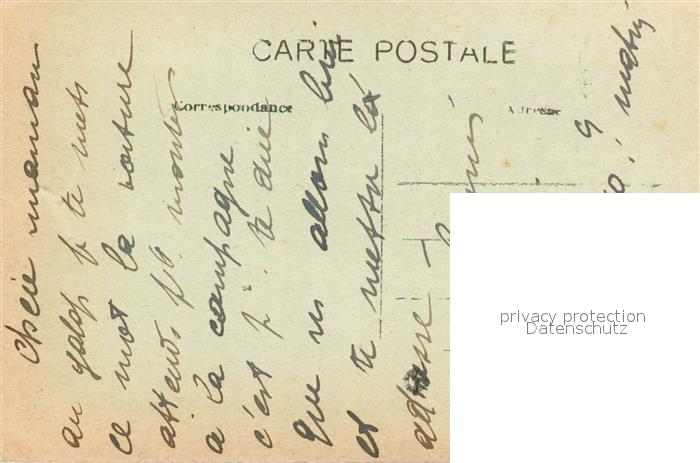 CARTE POSTALE
Correspondance
Adresse
Chère maman
au galop je te mets
ce mot la voiture
attend pr monter
à la campagne
c'est pr te dire
que ns allons bien
et te mettre là
adresse
privacy protection
Datenschutz